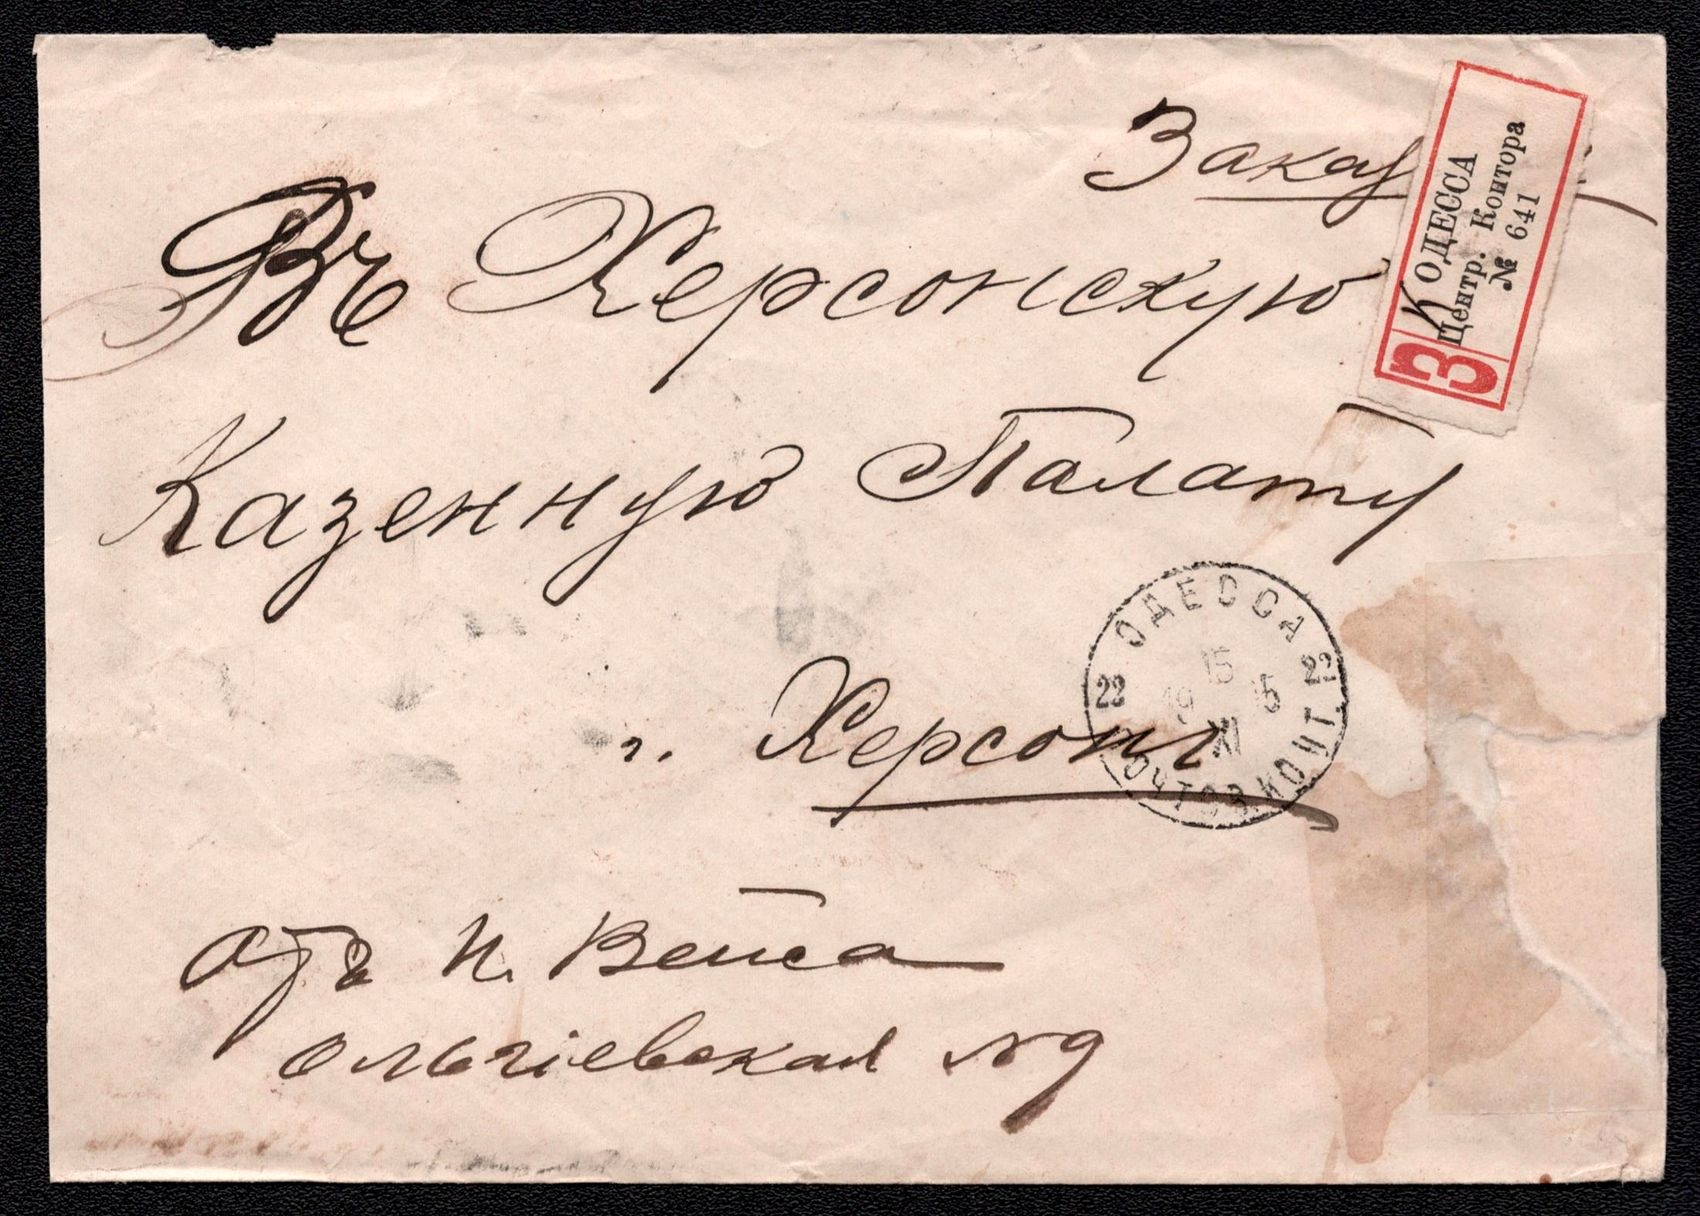 Заказ
З
ОДЕССА
Центр. Контора
№ 641
Въ Херсонскую
Казенную Палату
ОДЕССА
22 15 22
19 15
XI
ПОЧТОВ. КОНТ.
г. Херсонъ
Отъ И. Вейса
Ольгіевская № 9